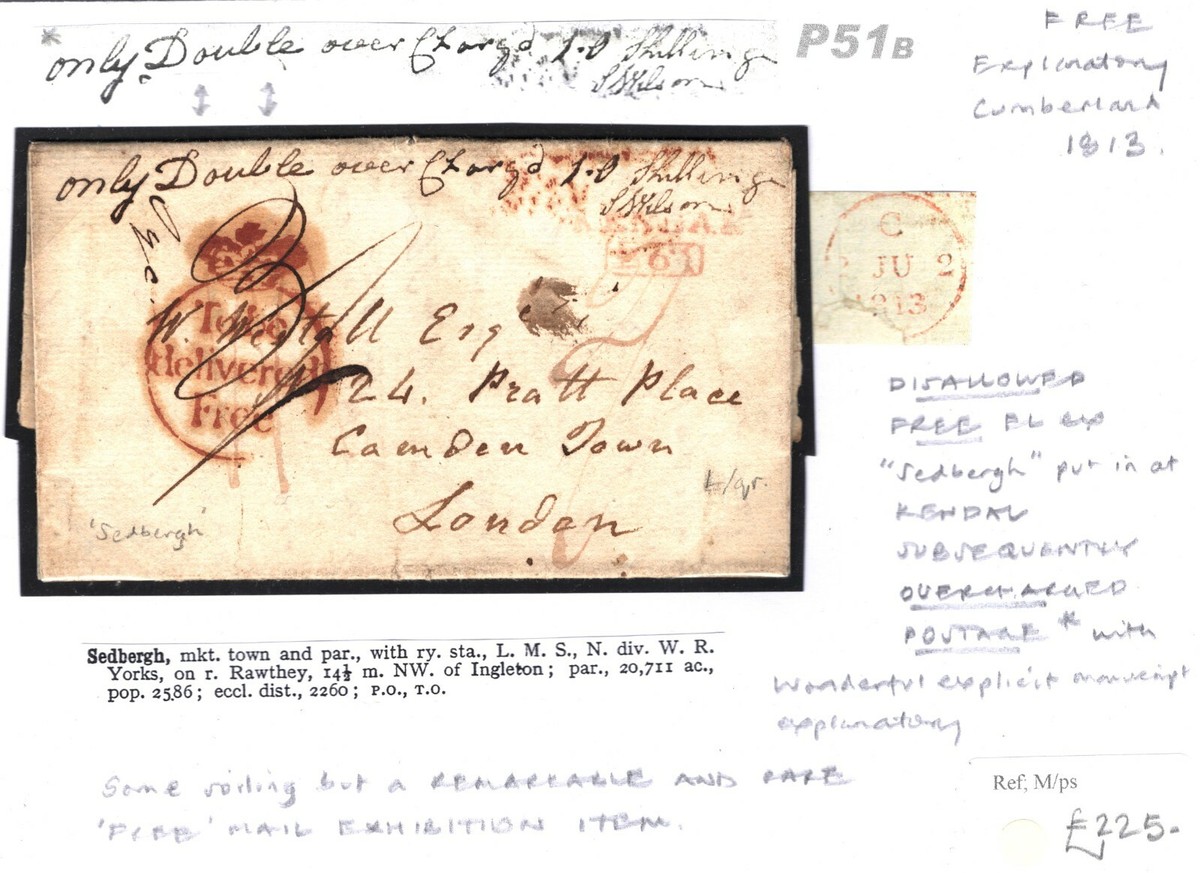 * only Double over Charg'd 1-0 Shillings
S Wilson
P51B
FREE
Explanatory
Cumberland
1813.
only Double over Charg'd 1-0 Shillings
S Wilson
KENDAL
261
To be
delivered
Free
W. Westall Esqr
24. Pratt Place
Camden Town
London
'Sedbergh'
C
2 JU 2
1813
DISALLOWED
FREE EL ex
"Sedbergh" put in at
KENDAL
SUBSEQUENTLY
OVERCHARGED
POSTAGE * with
Wonderful explicit manuscript
explanatory
Sedbergh, mkt. town and par., with ry. sta., L. M. S., N. div. W. R.
Yorks, on r. Rawthey, 14½ m. NW. of Ingleton; par., 20,711 ac.,
pop. 2586; eccl. dist., 2260; P.O., T.O.
Some soiling but a REMARKABLE AND RARE
'FREE' MAIL EXHIBITION ITEM.
Ref; M/ps
£225-